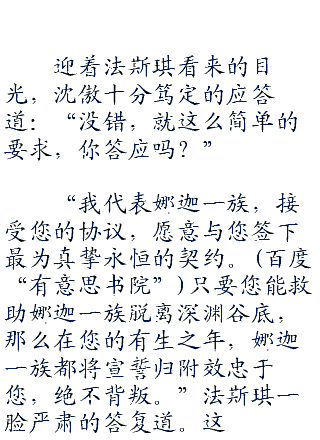 迎着法斯琪看来的目
光，沈傲十分笃定的应答
道：“没错，就这么简单的
要求，你答应吗？”
“我代表娜迦一族，接
受您的协议，愿意与您签下
最为真挚永恒的契约。(百度
“有意思书院”)只要您能救
助娜迦一族脱离深渊谷底，
那么在您的有生之年，娜迦
一族都将宣誓归附效忠于
您，绝不背叛。”法斯琪一
脸严肃的答复道。这